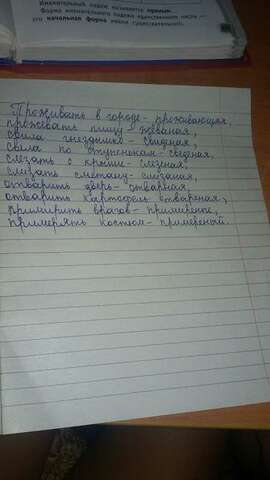 Именительный падеж называется прямым.
Форма именительного падежа единственного числа —
это начальная форма имени существительного.
Проживать в городе- проживающая,
прожевать пищу- жёваная,
свила гнёздышко- свиданая,
свела по ступенькам- сведеная,
слезать с крыши- слезеная,
слизать сметану- слизаная,
отворить дверь- отварная,
отварить картофель отвареная,
примирить врагов- примерение,
примерять костюм- примереный.